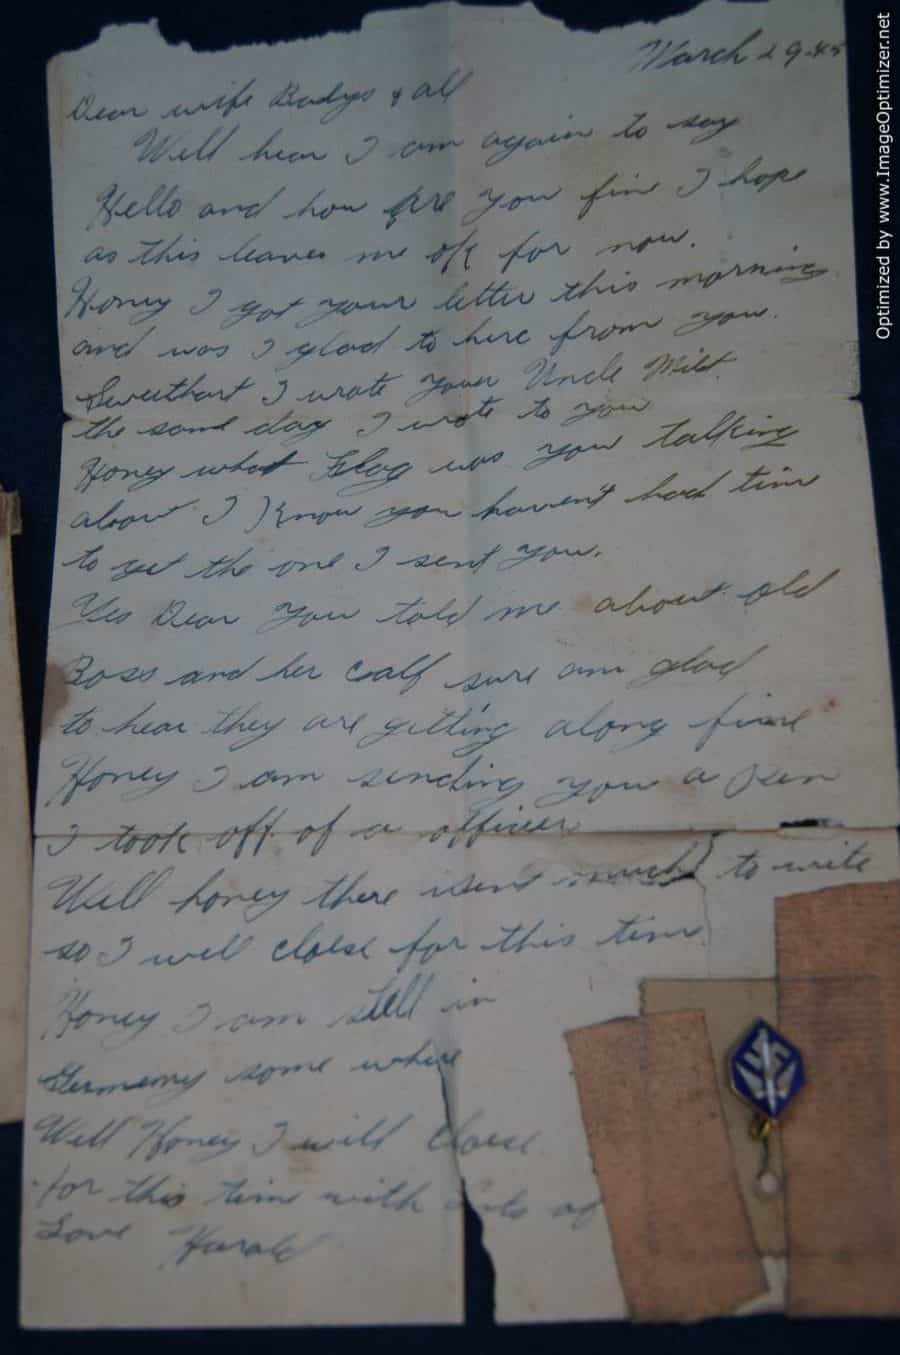 March 29-45
Dear wife Badys & all
Well hear I am again to say
Hello and how are you fine I hope
as this leaves me ok for now.
Honey I got your letter this morning
and was I glad to here from you.
Sweethart I wrote your Uncle Milt.
the same day I wrote to you
Honey what flag was you talking
about I know you haven't had time
to get the one I sent you.
Yes Dear you told me about old
Boss and her calf sure am glad
to hear they are getting along fine
Honey I am sending you a pen
I took off of a officer
Well honey there isent much to write
so I will close for this time.
Honey I am still in
Germany some where
Well Honey I will close
for this time with of
Love Harold
Optimized by www.ImageOptimizer.net